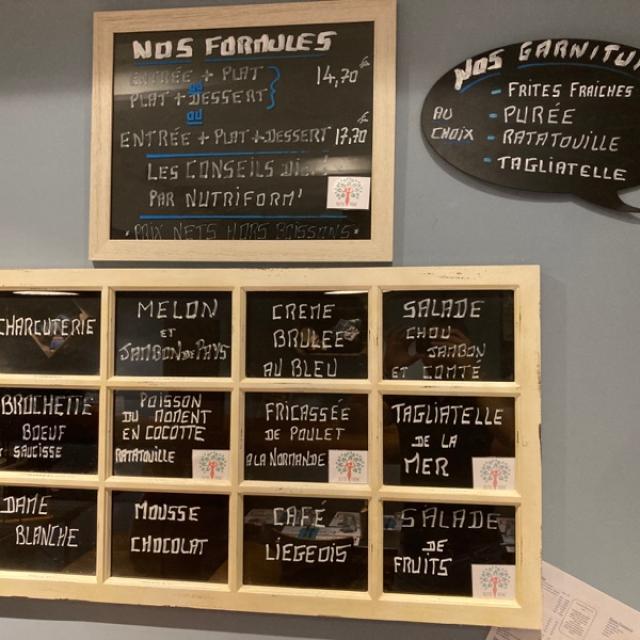 NOS FORMULES
ENTRÉE + PLAT
ou
PLAT + DESSERT
14,70 €
ou
ENTRÉE + PLAT + DESSERT 17,70
LES CONSEILS
PAR NUTRIFORM'
• PRIX NETS HORS BOISSONS •
NOS GARNITU
AU
CHOIX
- FRITES FRAICHES
- PURÉE
- RATATOUILLE
- TAGLIATELLE
CHARCUTERIE
MELON
ET
JAMBON DE PAYS
CREME
BRULEE
AU BLEU
SALADE
CHOU
JAMBON
ET COMTE
BROCHETTE
BOEUF
SAUCISSE
POISSON
DU MOMENT
EN COCOTTE
RATATOUILLE
FRICASSÉE
DE POULET
A LA NORMANDE
TAGLIATELLE
DE LA
MER
DAME
BLANCHE
MOUSSE
CHOCOLAT
CAFÉ
LIEGEOIS
SALADE
DE
FRUITS